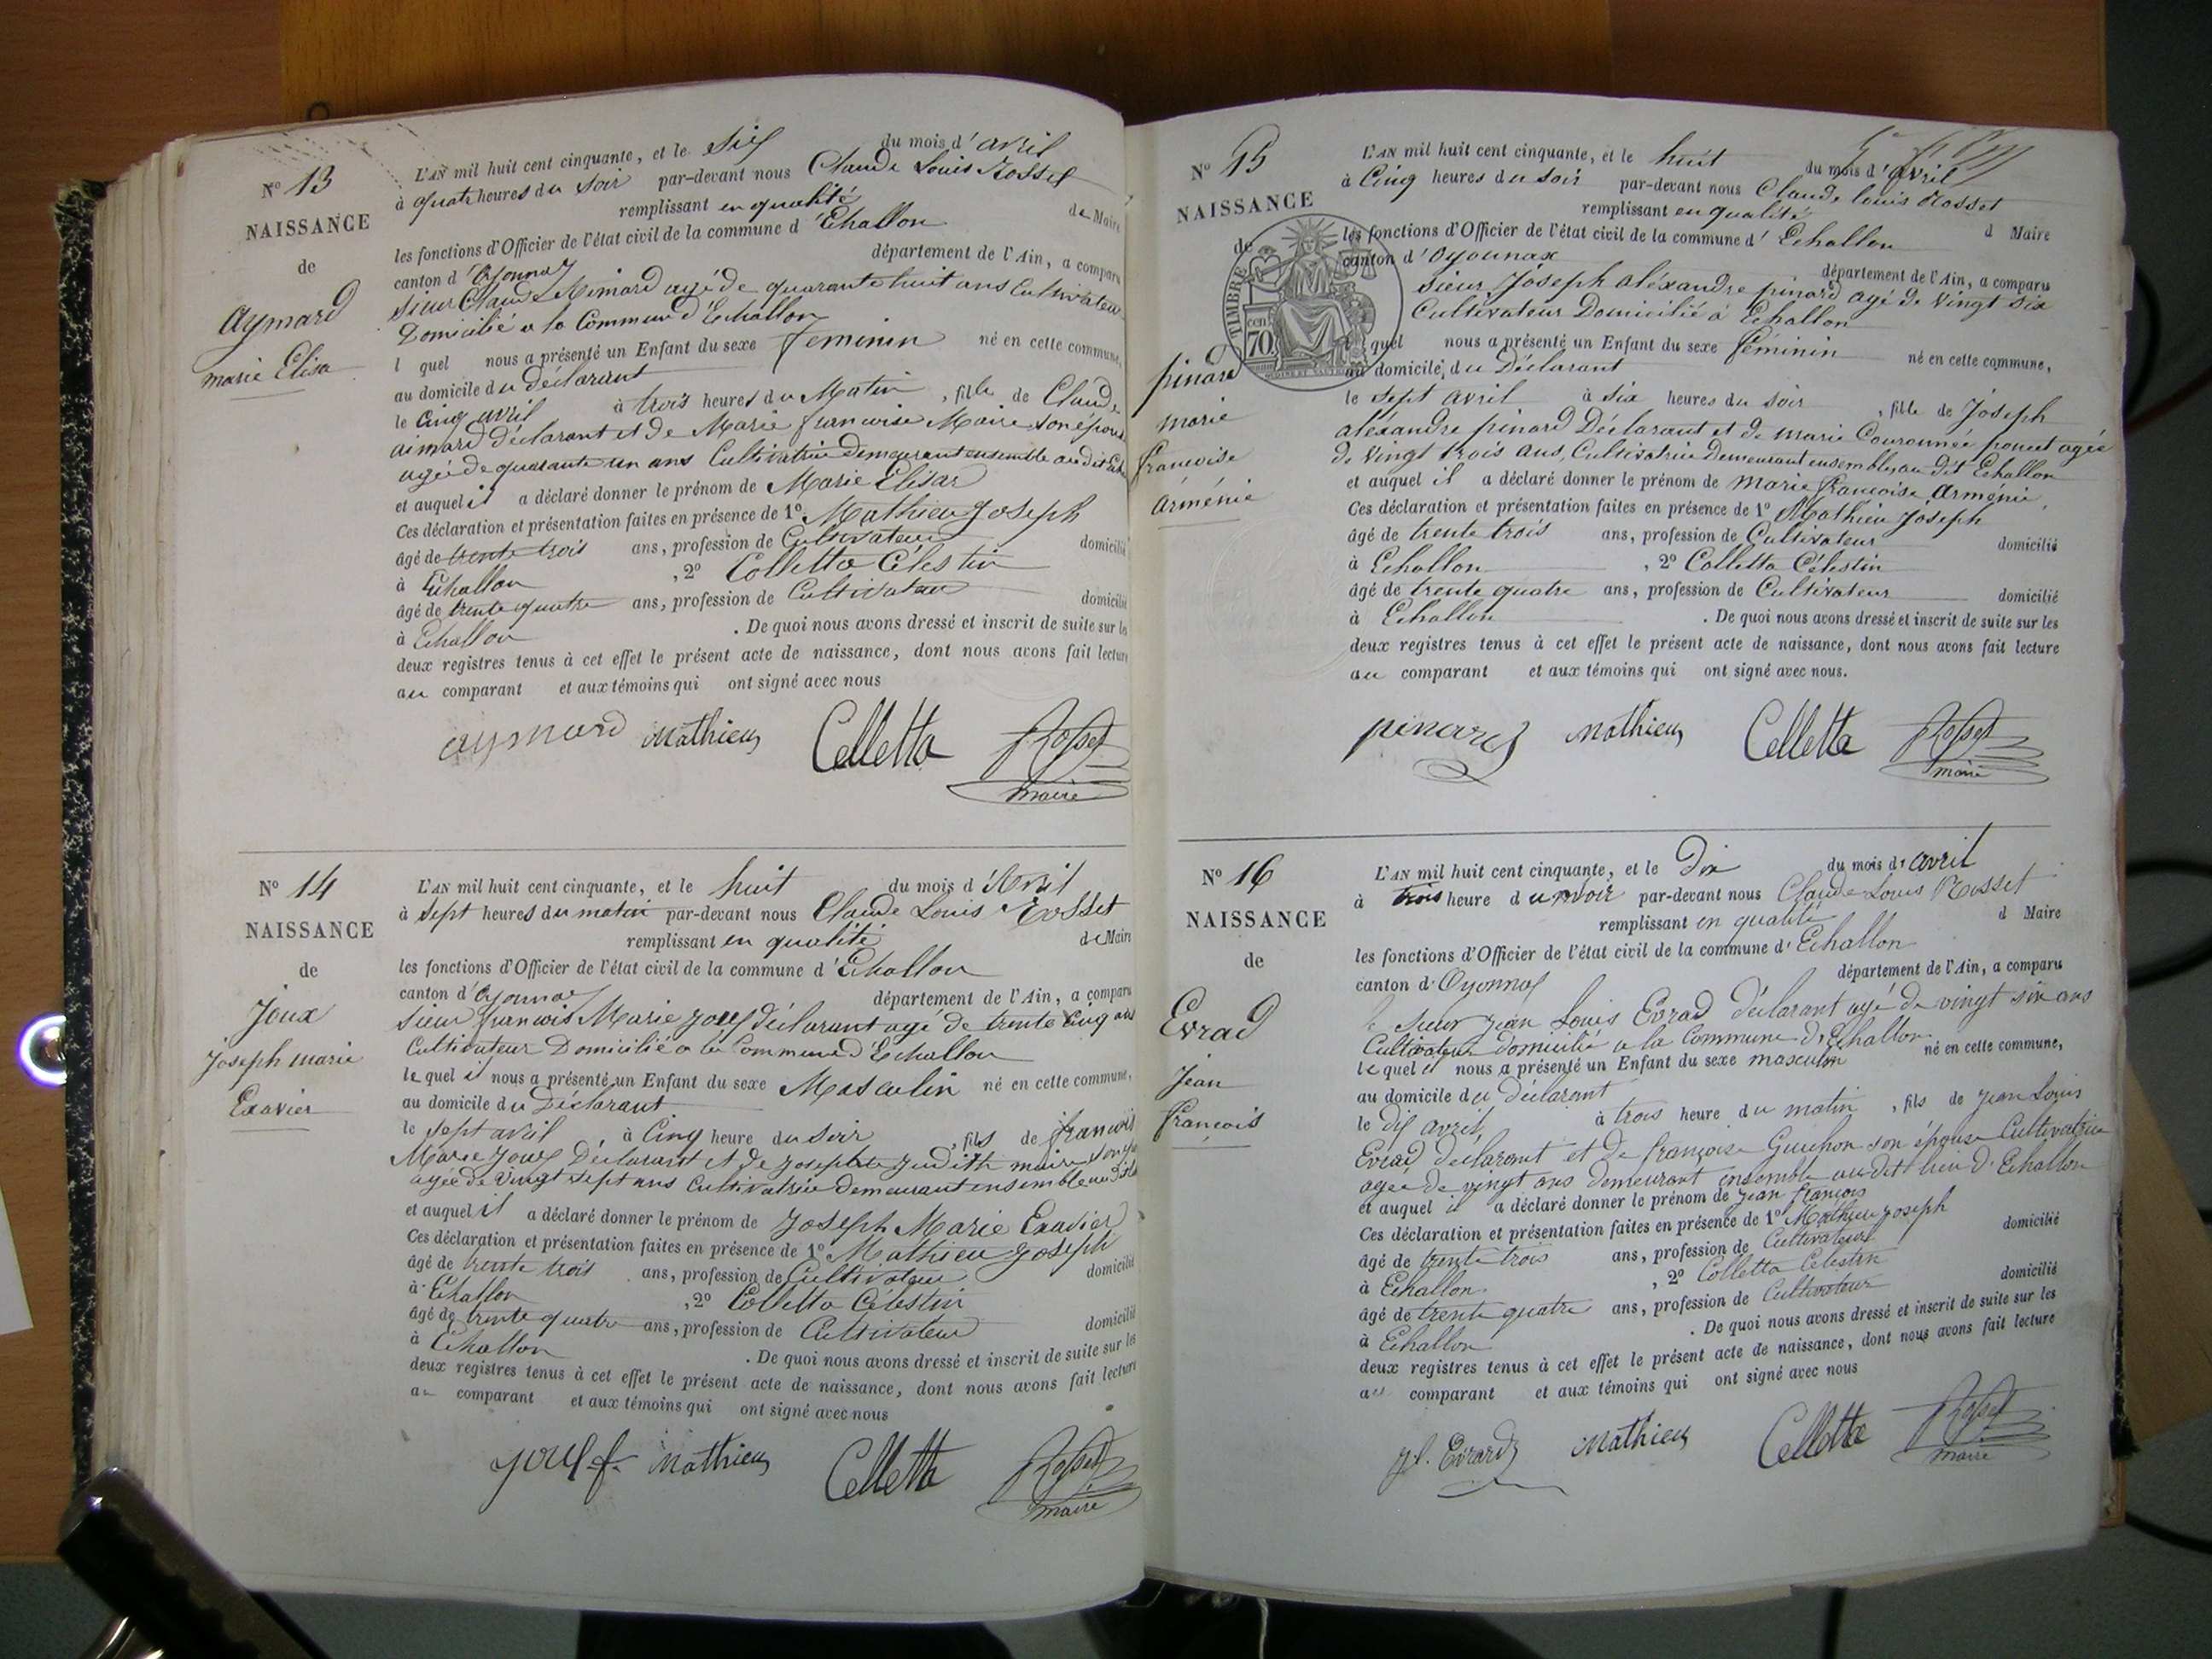 N° 13
NAISSANCE
de
Aymard
marie Elisa
L'AN mil huit cent cinquante, et le six du mois d'avril
à quatre heures du soir par-devant nous Claude Louis Rosset
remplissant en qualité de Maire
les fonctions d'Officier de l'état civil de la commune d'Echallon
canton d'Oyonnax département de l'Ain, a comparu
sieur Claude Aimard agé de quarante huit ans Cultivateur
Domicilié a la Commune d'Echallon
l quel nous a présenté un Enfant du sexe feminin né en cette commune,
au domicile du déclarant
le Cinq avril à trois heures du Matin, fille de Claude
aimard déclarant et de Marie francoise Maire son épouse
agée de quarante un ans Cultivatrice demeurant ensemble au dit
et auquel il a déclaré donner le prénom de Marie Elisa
Ces déclaration et présentation faites en présence de 1° Mathieu Joseph
âgé de trente trois ans, profession de Cultivateur domicilié
à Echallon, 2° Colletta Célestin
âgé de trente quatre ans, profession de Cultivateur domicilié
à Echallon. De quoi nous avons dressé et inscrit de suite sur les
deux registres tenus à cet effet le présent acte de naissance, dont nous avons fait lecture
au comparant et aux témoins qui ont signé avec nous
aymard Mathieu Colletta Rosset
maire
N° 14
NAISSANCE
de
Joux
Joseph marie
Exavier
L'AN mil huit cent cinquante, et le huit du mois d'Avril
à sept heures du matin par-devant nous Claude Louis Rosset
remplissant en qualité de Maire
les fonctions d'Officier de l'état civil de la commune d'Echallon
canton d'Oyonnax département de l'Ain, a comparu
sieur francois Marie Joux déclarant agé de trente Cinq ans
Cultivateur Domicilié a la Commune d'Echallon
le quel il nous a présenté un Enfant du sexe Masculin né en cette commune,
au domicile du Déclarant
le sept avril, à Cinq heure du soir, fils de francois
Marie Joux Déclarant et de Josephte Judith maire son
agée de vingt sept ans Cultivatrice demeurant ensemble au dit
et auquel il a déclaré donner le prénom de Joseph Marie Exavier
Ces déclaration et présentation faites en présence de 1° Mathieu Joseph
âgé de trente trois ans, profession de Cultivateur domicilié
à Echallon, 2° Colletta Célestin
âgé de trente quatre ans, profession de Cultivateur domicilié
à Echallon. De quoi nous avons dressé et inscrit de suite sur les
deux registres tenus à cet effet le présent acte de naissance, dont nous avons fait lecture
au comparant et aux témoins qui ont signé avec nous
joux f. Mathieu Colletta Rosset
maire
N° 15
NAISSANCE
de
TIMBRE
70
cent
pinard
marie
francoise
Arménie
L'AN mil huit cent cinquante, et le huit du mois d'avril
à Cinq heures du soir par-devant nous Claude louis Rosset
remplissant en qualité d Maire
les fonctions d'Officier de l'état civil de la commune d'Echallon
canton d'Oyonnax département de l'Ain, a comparu
sieur Joseph aléxandre pinard agé de vingt six
Cultivateur Domicilié à Echallon
quel nous a présenté un Enfant du sexe féminin né en cette commune,
au domicile du Déclarant
le sept avril à six heures du soir, fille de Joseph
aléxandre pinard Déclarant et de marie Couronnée poncet agée
de vingt trois ans, Cultivatrice demeurant ensemble au dit Echallon
et auquel il a déclaré donner le prénom de marie francoise Arménie,
Ces déclaration et présentation faites en présence de 1° Mathieu Joseph
âgé de trente trois ans, profession de Cultivateur domicilié
à Echallon, 2° Colletta Célestin
âgé de trente quatre ans, profession de Cultivateur domicilié
à Echallon. De quoi nous avons dressé et inscrit de suite sur les
deux registres tenus à cet effet le présent acte de naissance, dont nous avons fait lecture
au comparant et aux témoins qui ont signé avec nous.
pinard Mathieu Colletta Rosset
maire
N° 16
NAISSANCE
de
Evrad
Jean
françois
L'AN mil huit cent cinquante, et le Dix du mois d'avril
à trois heure du soir par-devant nous Claude Louis Rosset
remplissant en qualité d Maire
les fonctions d'Officier de l'état civil de la commune d'Echallon
canton d'Oyonnax département de l'Ain, a comparu
le sieur jean Louis Evrad déclarant agé de vingt six ans
Cultivateur domicilié a la Commune d'Echallon
le quel il nous a présenté un Enfant du sexe masculin né en cette commune,
au domicile du déclarant
le dix avril, à trois heure du matin, fils de jean Louis
Evrad declarant et de françoise Guichon son épouse Cultivatrice
agée de vingt ans demeurant ensemble au dit lieu d'Echallon
et auquel il a déclaré donner le prénom de jean françois
Ces déclaration et présentation faites en présence de 1° Mathieu joseph
âgé de trente trois ans, profession de Cultivateur domicilié
à Echallon, 2° Colletta Célestin
âgé de trente quatre ans, profession de Cultivateur domicilié
à Echallon. De quoi nous avons dressé et inscrit de suite sur les
deux registres tenus à cet effet le présent acte de naissance, dont nous avons fait lecture
au comparant et aux témoins qui ont signé avec nous
jl. Evrard Mathieu Colletta Rosset
maire